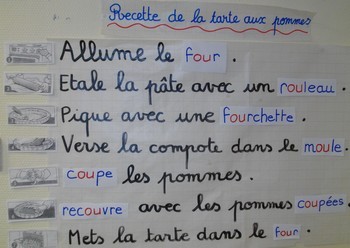 Recette de la tarte aux pommes
Allume le four.
Etale la pâte avec un rouleau.
Pique avec une fourchette.
Verse la compote dans le moule.
coupe les pommes.
recouvre avec les pommes coupées.
Mets la tarte dans le four.